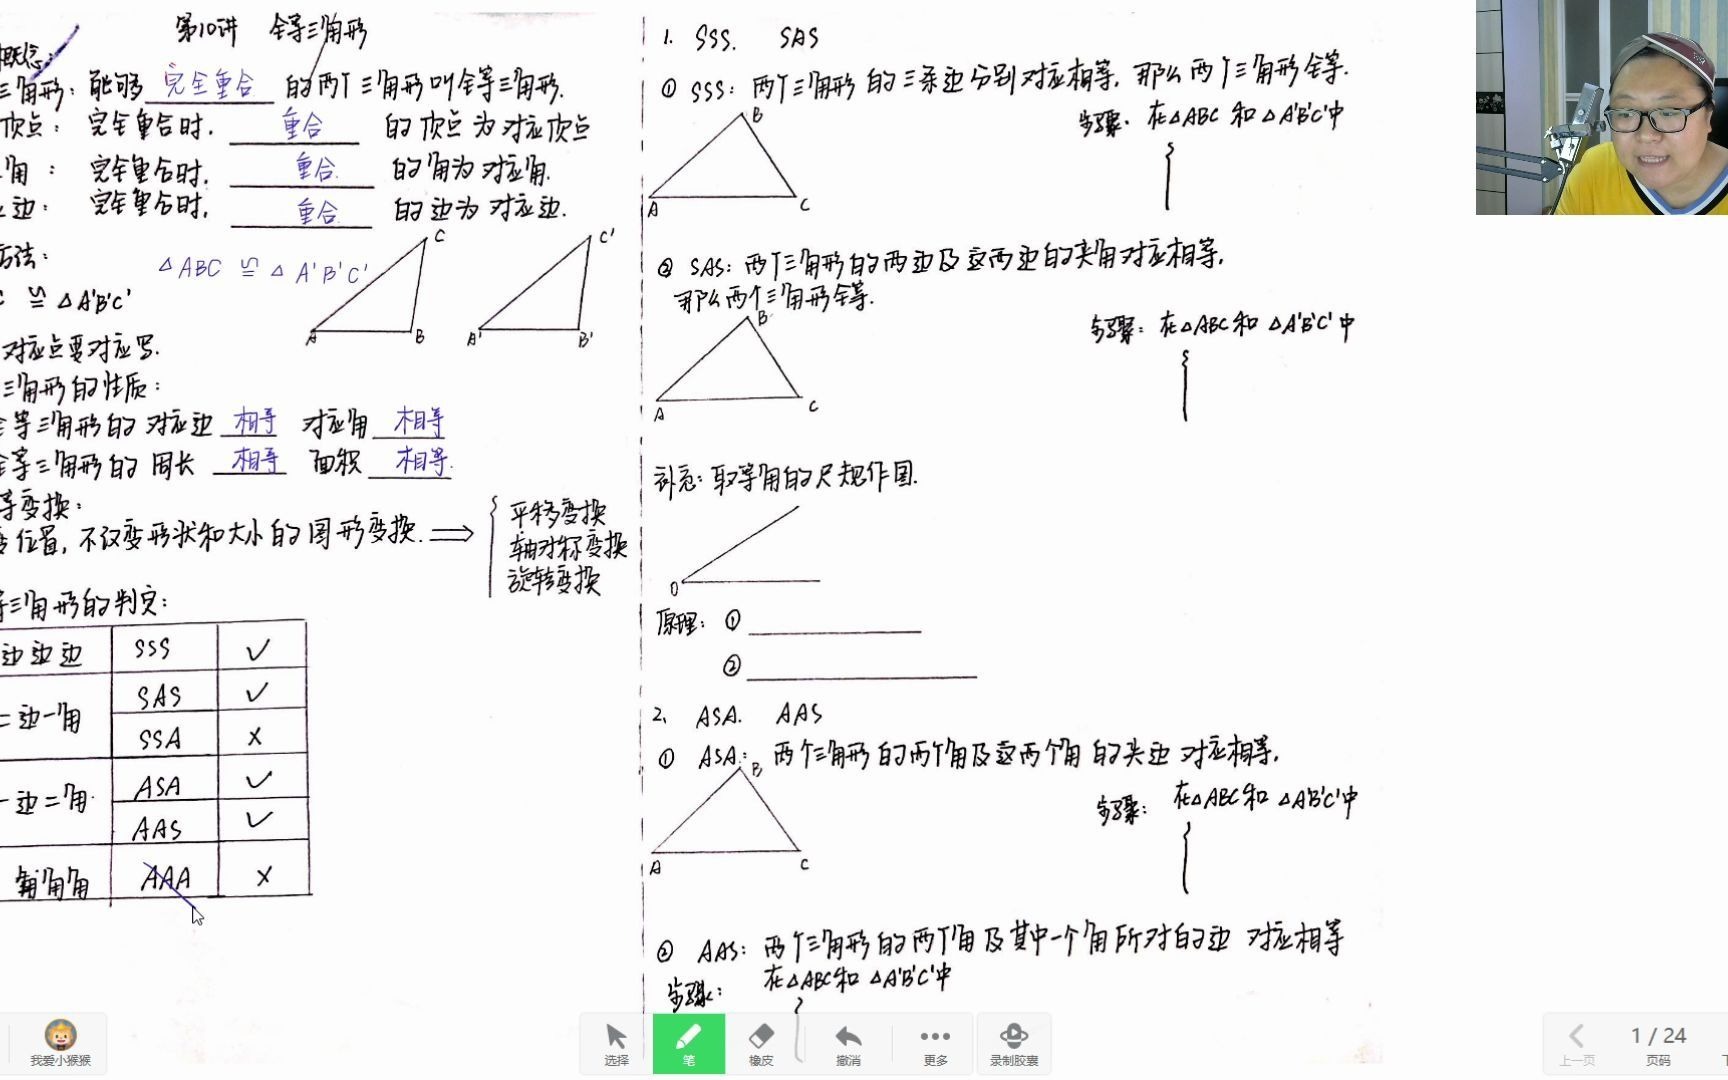 第10讲 全等三角形
概念:
三角形: 能够 完全重合 的两个三角形叫全等三角形.
顶点: 完全重合时, 重合 的顶点为对应顶点
角: 完全重合时, 重合 的角为对应角.
边: 完全重合时, 重合 的边为对应边.
方法:
△ABC ≌ △A'B'C'
≌ △A'B'C'
A B C
A' B' C'
对应点要对应写.
三角形的性质:
等三角形的对应边 相等 对应角 相等
等三角形的周长 相等 面积 相等.
等变换:
位置, 不改变形状和大小的图形变换. ⟹
平移变换
轴对称变换
旋转变换
等三角形的判定:
边边边 SSS ✓
二边一角 SAS ✓
SSA ×
一边二角 ASA ✓
AAS ✓
角角角 AAA ×
1. SSS. SAS
① SSS: 两个三角形的三条边分别对应相等, 那么两个三角形全等.
步骤: 在△ABC 和 △A'B'C'中
A B C
② SAS: 两个三角形的两边及这两边的夹角对应相等,
那么两个三角形全等.
步骤: 在△ABC和 △A'B'C'中
A B C
补充: 取等角的尺规作图.
O
原理: ①
②
2. ASA. AAS
① ASA: 两个三角形的两个角及这两个角的夹边对应相等,
步骤: 在△ABC和 △A'B'C'中
A B C
② AAS: 两个三角形的两个角及其中一个角所对的边 对应相等
步骤: 在△ABC和 △A'B'C'中
我爱小猴猴
选择
笔
橡皮
撤消
更多
录制胶囊
上一页
1 / 24
页码